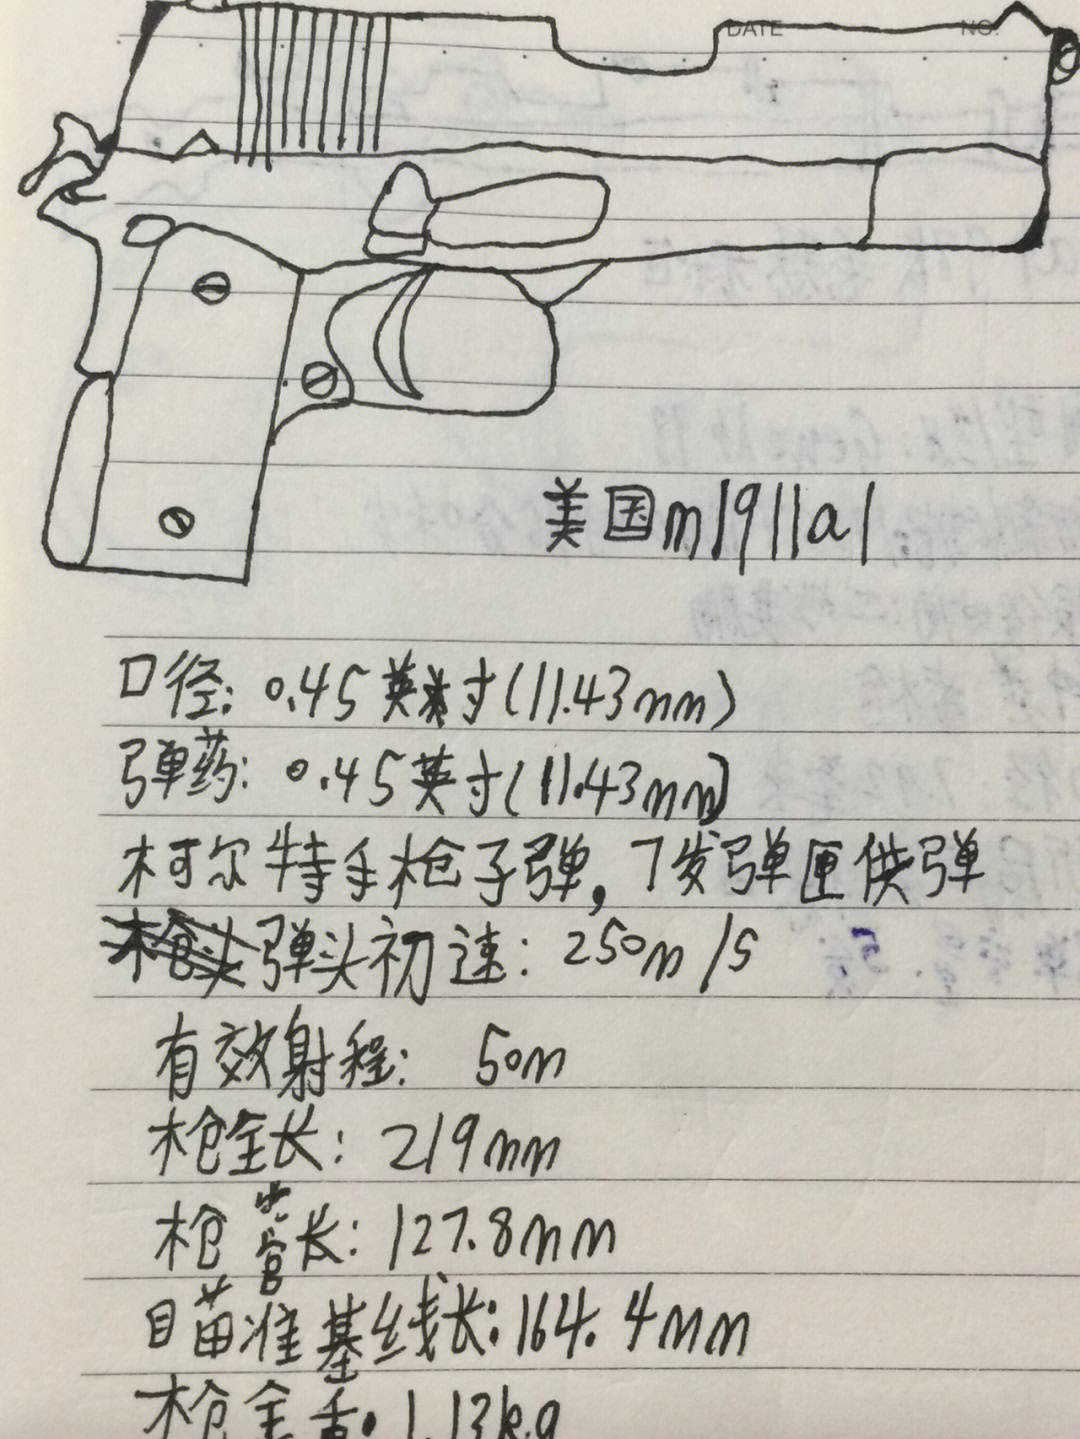 DATE NO.
美国m1911a1
口径: 0.45英寸(11.43mm)
弹药: 0.45英寸(11.43mm)
柯尔特手枪子弹,7发弹匣供弹
弹头初速: 250m/s
有效射程: 50m
枪全长: 219mm
枪管长: 127.8mm
瞄准基线长: 164.4mm
枪全重: 1.13kg